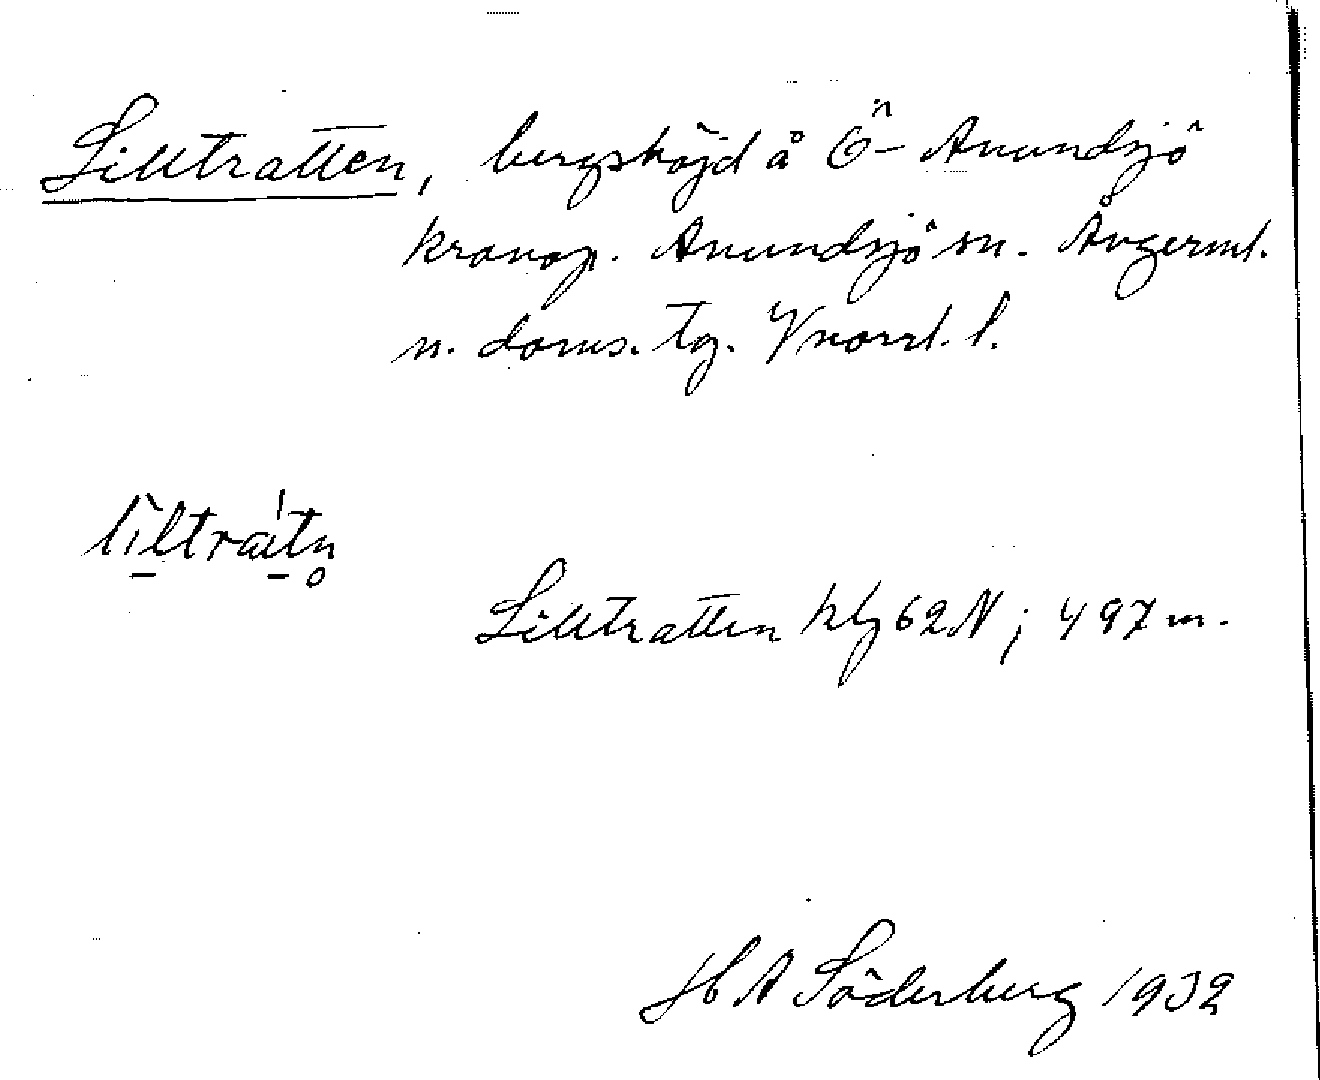 Lilltratten, bergshöjd å Ö- Anundsjö
kronop. Anundsjö sn. Ångerml.
n. doms. tg. Vnorrl. l.
lìltrátn̥
Lilltratten kbl 62 N; 497 m.
H A Söderberg 1932